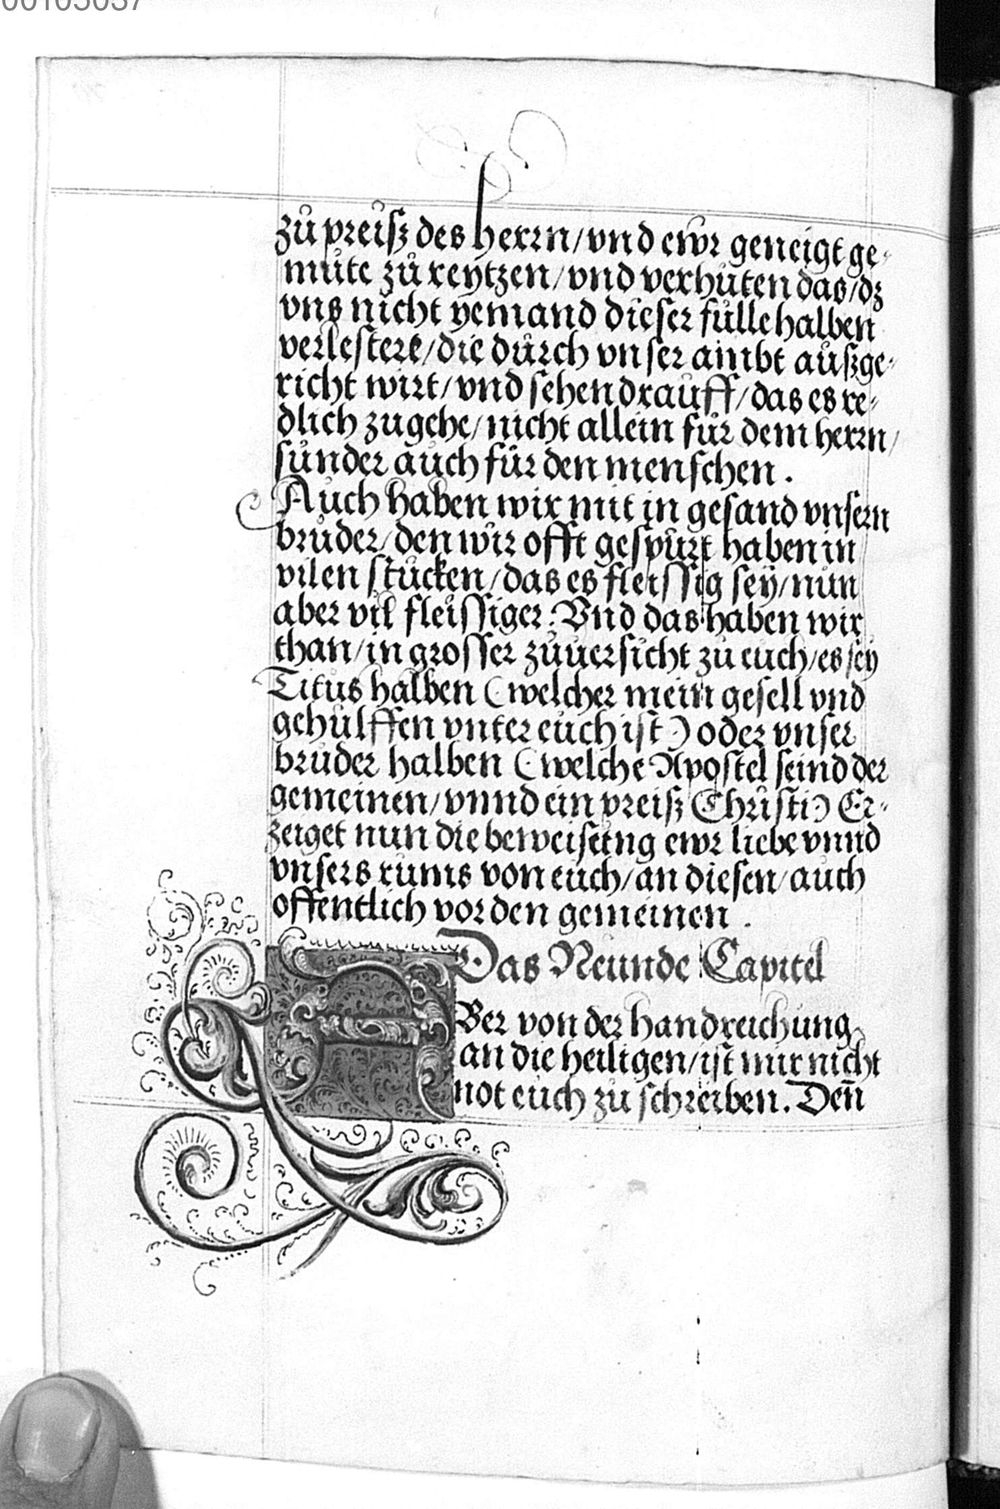 00105037
zů preiß des herrn/vnd ewr geneigt ge-
můte zů reytzen/vnd verhůten das/dz
vns nicht yemand dieser fülle halben
verlestere/die durch vnser ambt außge-
richt wirt/vnd sehen drauff/das es re-
dlich zugehe/nicht allein für dem herrn/
sunder auch für den menschen.
Auch haben wir mit in gesand vnsern
bruder/den wir offt gespürt haben in
vilen stucken/das es fleissig sey/nun
aber vil fleissiger: Vnd das haben wir
than/in grosser zůuersicht zu euch/es sey
Titus halben (welcher mein gesell vnd
gehülffen vnter euch ist) oder vnser
bruder halben (welche Apostel seind der
gemeinen/vnnd ein preiß Christi) Er-
zeiget nun die beweisung ewr liebe vnnd
vnsers rums von euch/an diesen/auch
offentlich vor den gemeinen.
Das Neunde Capitel
ABer von der handreichung
an die heiligen/ist mir nicht
not euch zu schreiben. Deñ